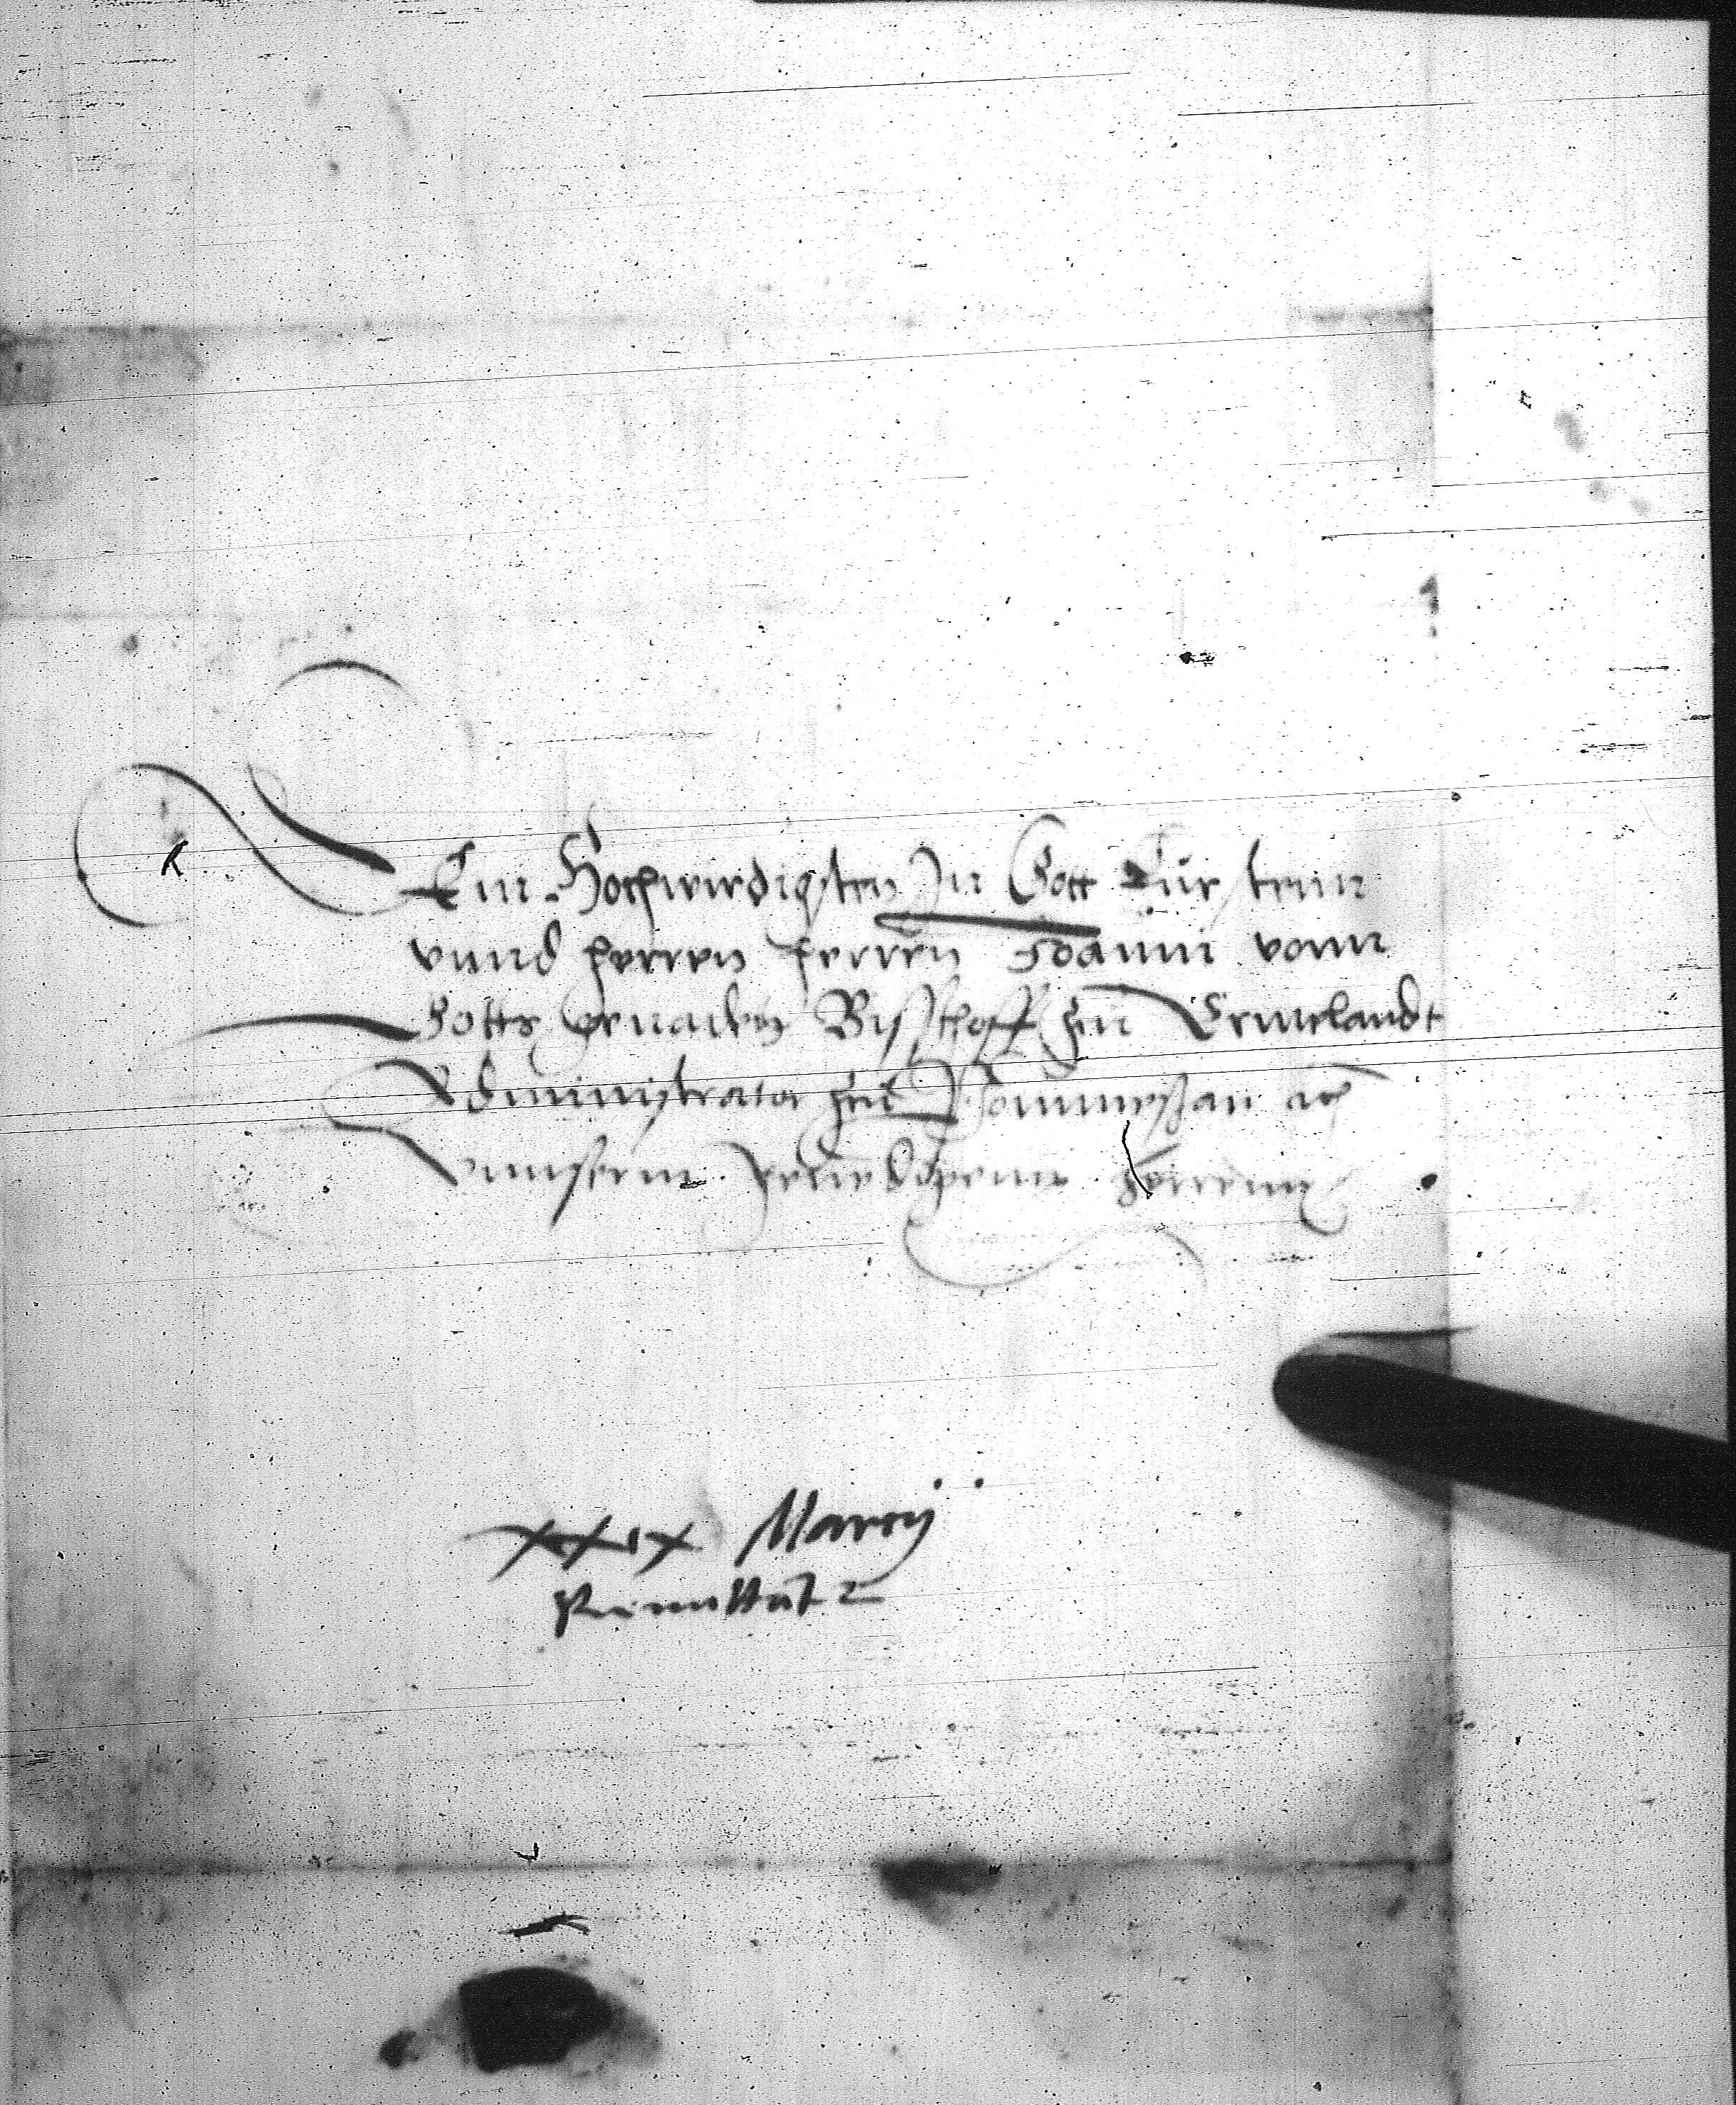 Dem Hochwirdigsten In Gott Fürsten
vnnd herren herren Joanni vonn
Gotts genaden Bisschoff zu Ermelandt
Administrator zu Pommezan etc
vnnserm genedigenn herrenn
XXIX Marcij